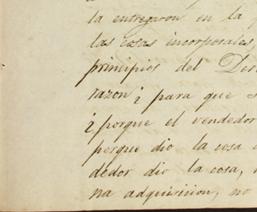 la entregaron en la
las cosas incorporales,
principios del
razon ¿ para que
¿ porque el vendedor
porque dio la cosa
dedor dio la cosa,
na adquisicion, no